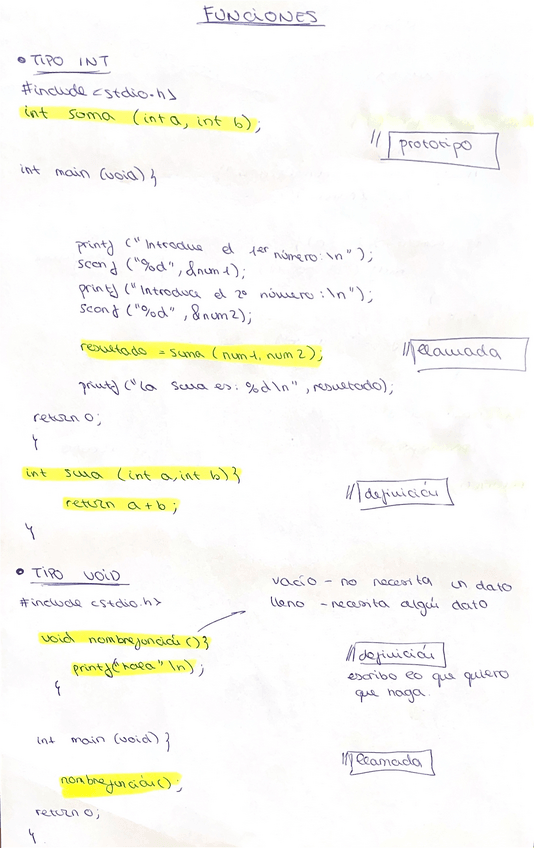 FUNCIONES
• TIPO INT
#include <stdio.h>
int suma (int a, int b);
// prototipo
int main (void) {
printf ("Introduce el 1er número: \n");
scanf ("%d", &num1);
printf ("Introduce el 2º número: \n");
scanf ("%d", &num2);
resultado = suma (num1, num2);
// llamada
printf ("La suma es: %d\n", resultado);
return 0;
}
int suma (int a, int b) {
return a+b;
// definición
}
• TIPO VOID
vacío - no necesita un dato
#include <stdio.h>
lleno - necesita algún dato
void nombrefunción () {
printf("hola" \n);
// definición
escribo lo que quiero
que haga.
}
int main (void) {
// llamada
nombrefunción();
return 0;
}